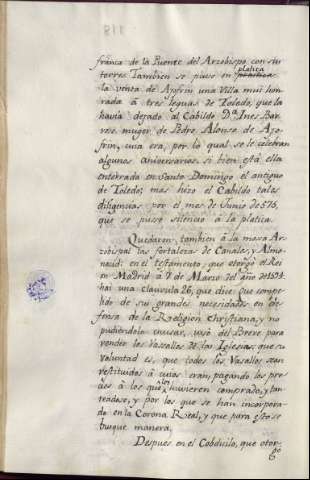 franca de la Puente del Arzobispo con sus
torres. Tambien se puso en platica
la venta de Ajofrin una Villa mui hon-
rada à tres leguas de Toledo, que la
havia dejado al Cabildo D.ª Ines Bar-
roso, muger de Pedro Alonso de Ajo-
frin, una era, por la qual se le celebran
algunos aniversarios si bien está ella
enterrada en Santo Domingo el antiguo
de Toledo; mas hizo el Cabildo tales
diligencias por el mes de Junio de 575,
que se puso silencio à la platica.
Quedaron tambien à la mesa Ar-
zobispal las fortalezas de Canales, y Almo-
nacid: en el testamento, que otorgó el Rei
en Madrid à 7 de Marzo del año de 1594
hai una clausula 26, que dice que compe-
lido de sus grandes necesidades en de-
fensa de la Religion Christiana, y no
pudiendolo escusar, usó del Breve para
vender los Vasallos de las Iglesias, que su
voluntad es, que todos los Vasallos sean
restituidos à cuios eran, pagando los pre-
cios à los que los huvieren comprado, y tan-
teadose, y por los que se han incorpora-
do en la Corona Real, y que para esto se
busque manera.
Despues en el Cobdicilo, que otor-
gó